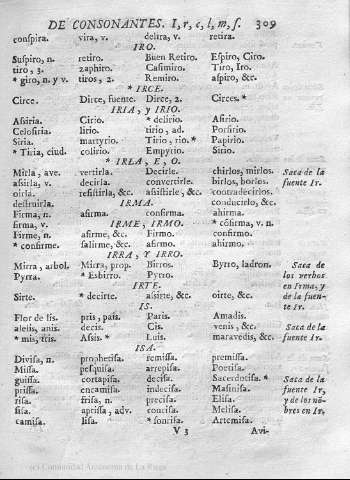 DE CONSONANTES. I, r, c, l, m, ſ. 309
conſpira. vira, v. delira, v. retira.
IRO.
Suſpiro, n. retiro. Buen Retiro. Eſpiro, Ciro.
tiro, 3. zaphiro. Caſimiro. Tiro, Iro.
* giro, n. y v. tiros, 2. Remiro. aſpiro, &c.
* IRCE.
Circe. Dirce, fuente. Dirce, 2. Circes. *
IRIA, y IRIO.
Aſsiria. Cirio. * delirio. Aſirio.
Celoſiria. lirio. tirio, ad. Porfirio.
Siria. martyrio. Tirio, rio. * Papirio.
* Tiria, ciud. colirio. Empyrio. Sirio.
* IRLA, E, O.
Mirla, ave. vertirla. Decirle. chirlos, mirlos. Saca de la
aſsirla, v. decirla. convertirle. birlos, borlos. fuente Ir.
oirla. reſiſtirla, &c. aſsiſtirle, &c. contradecirlos.
deſtruirla. IRMA. conducirlo, &c.
Firma, n. afirma. confirma. ahirma.
firma, v. IRME, IRMO. * cõfirma, v. n.
Firme, n. afirme, &c. Firmo. confirmo.
* confirme. ſalirme, &c. afirmo. ahirmo.
IRRA, Y IRRO.
Mirra, arbol. Mirra, prop. Birros. Byrro, ladron. Saca de
Pyrra. * Esbirro. Pyrro. los verbos
IRTE. en Irma, y
Sirte. * decirte. aſsirte, &c. oirte, &c. de la fuen-
IS. te Ir.
Flor de lis. pris, pais. Paris. Amadis.
alelis, anis. decis. Cis. venis, &c. Saca de la
* mis, tris. Aſsis. * Luis. maravedis, &c. fuente Ir.
ISA.
Diviſa, n. propheti­ſa. remiſſa. premiſſa.
Miſſa. peſquiſa. arrepiſa. Poetiſa.
guiſſa. cortapiſa. deciſa. Sacerdotiſa. * Saca de la
priſſa. encamiſa. indeciſa. Maſiniſa. fuente Ir,
riſa. friſa, n. preciſa. Eliſa. y de los nõ-
ſiſa. apriſſa, adv. conciſa. Meliſa. bres en Ir,
camiſa. liſa. * ſonriſa. Artemiſa.
V 3 Avi-
(c) Comunidad Autónoma de La Rioja